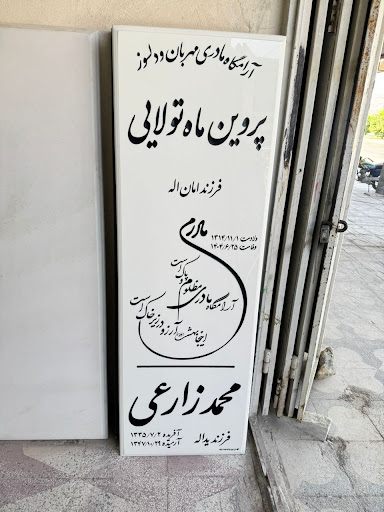 آرامگاه مادری مهربان و دلسوز
پروین ماه تولایی
فرزند امان اله
مادرم
ولادت ۱۳۱۴/۱۱/۱
وفات ۱۴۰۴/۶/۲۵
آرامگاه مادری مظلوم و پاک است
اینجا بهشت آرزو در زیر خاک است
محمد زارعی
فرزند یداله
آفریده ۱۳۳۵/۷/۲
آرمیده ۱۳۴۷/۱۰/۲۹